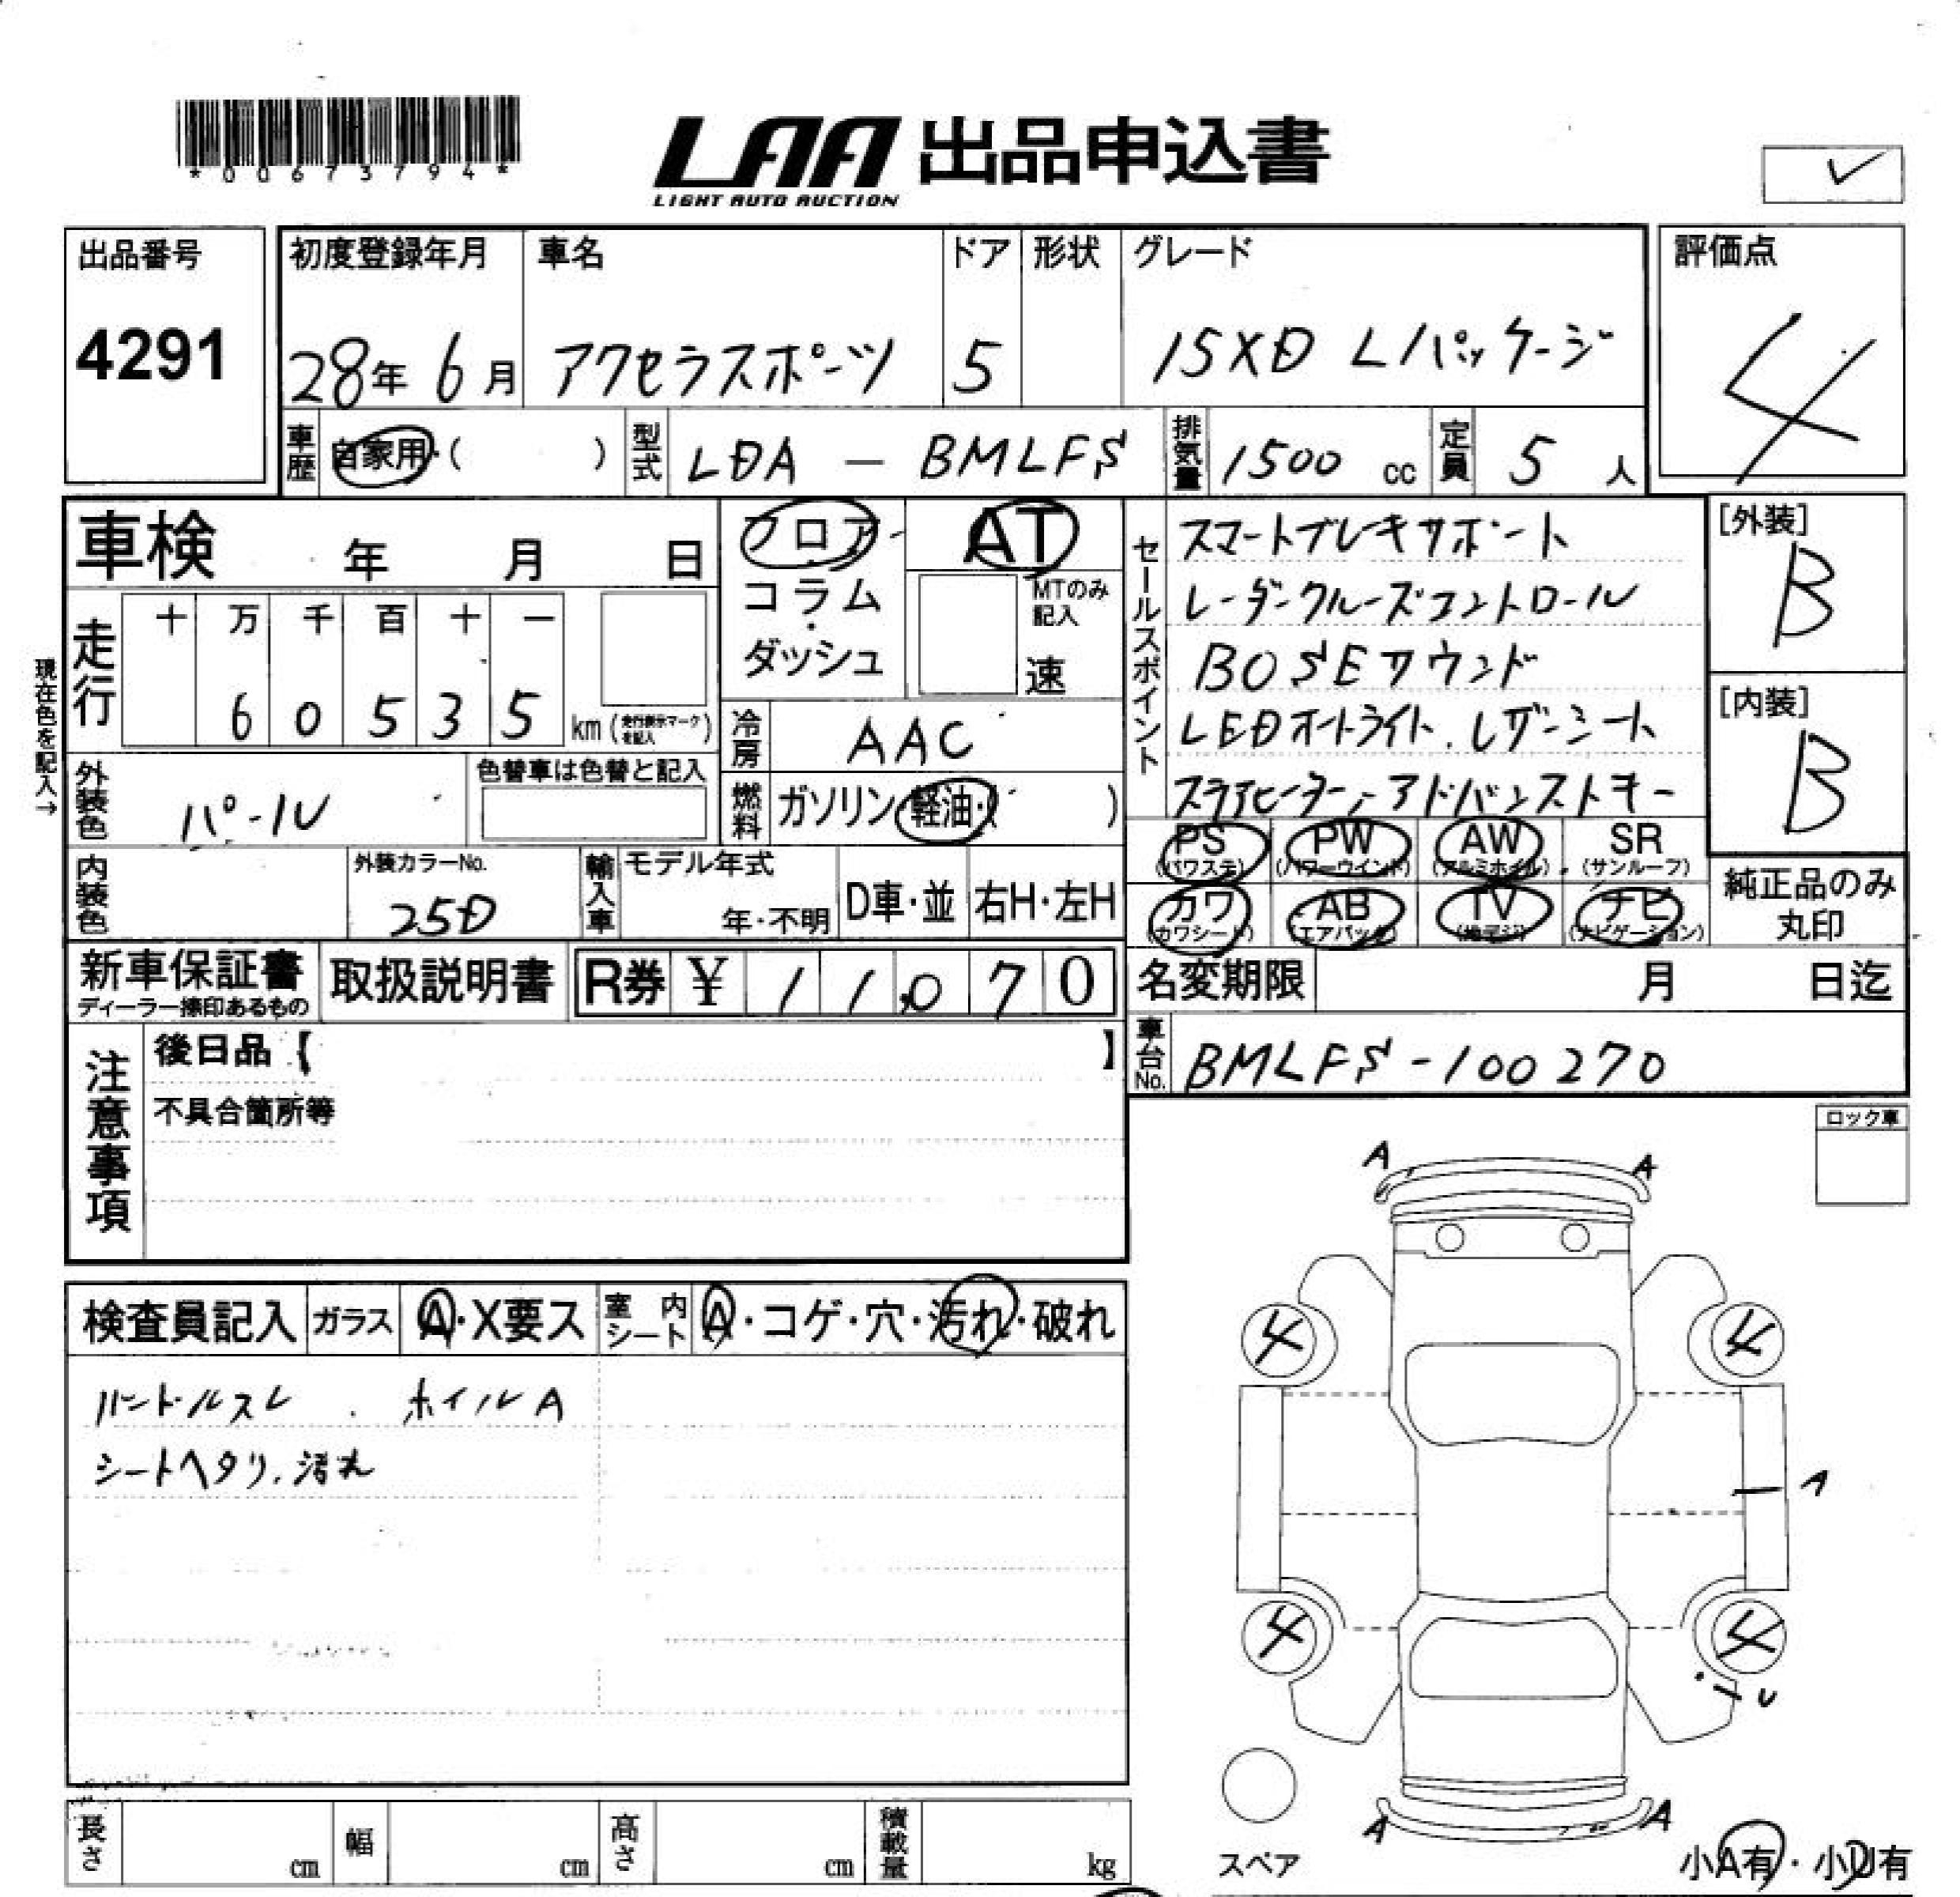 *00673794*
LAA 出品申込書
LIGHT AUTO AUCTION
✓
出品番号
4291
初度登録年月
28年 6月
車名
アクセラスポーツ
ドア
5
形状
グレード
15XD Lパッケージ
評価点
4
車歴
自家用・( )
型式
LDA — BMLFS
排気量
1500 cc
定員
5 人
車検 年 月 日
現在色を記入→
走行
十 万 千 百 十 一
6 0 5 3 5 km (走行表示マークを記入)
フロア・
コラム・
ダッシュ
AT
MTのみ記入
速
冷房
AAC
燃料
ガソリン・軽油・( )
セールスポイント
スマートブレキサポート
レーダークルーズコントロール
BOSEサウンド
LEDオートライト、レザーシート
アドバンストキー
[外装]
B
[内装]
B
外装色
パール
色替車は色替と記入
内装色
外装カラーNo.
25D
輸入車
モデル年式
年・不明
D車・並
右H・左H
PS (パワステ)
PW (パワーウインド)
AW (アルミホイル)
SR (サンルーフ)
カワ (カワシート)
AB (エアバック)
TV (地デジ)
ナビ (ナビゲーション)
純正品のみ丸印
新車保証書
ディーラー捺印あるもの
取扱説明書
R券 ¥ 11,070
名変期限 月 日迄
車台No.
BMLFS-100270
注意事項
後日品【 】
不具合箇所等
ロック車
検査員記入
ガラス
A・X要ス
室内シート
A・コゲ・穴・汚れ・破れ
ハンドルスレ . ホイルA
シートヘタリ、汚れ
A A
4 4
A
4 4
U
A A
スペア
小A有・小U有
長さ cm
幅 cm
高さ cm
積載量 kg